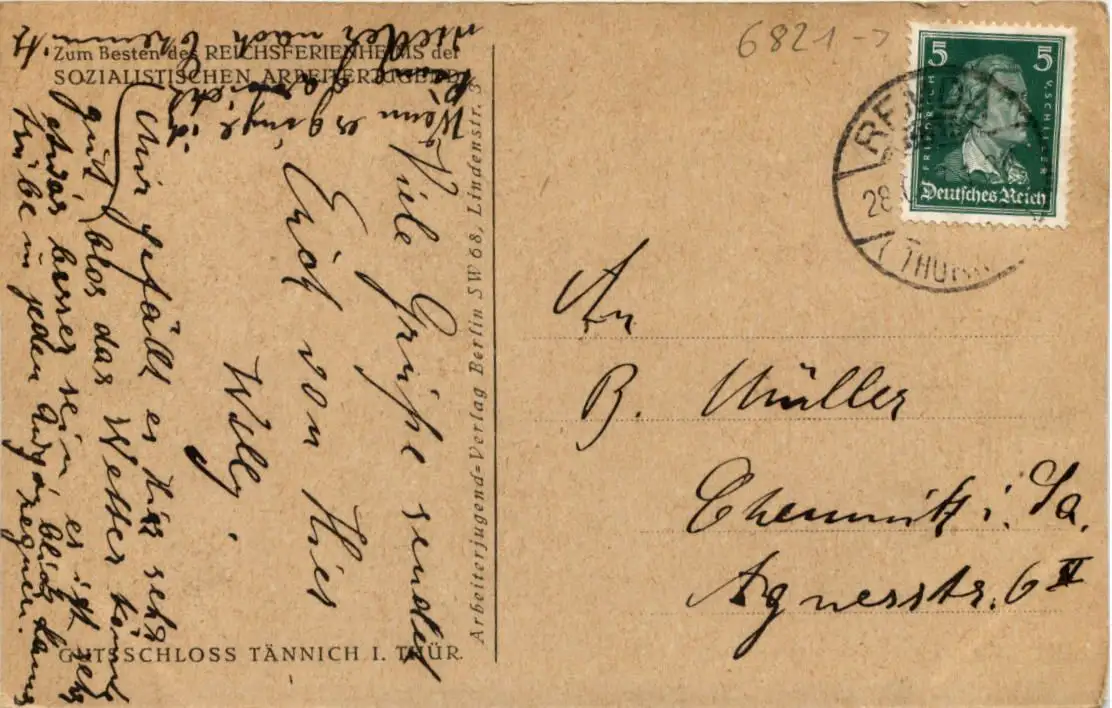 Zum Besten des REICHSFERIENHEIMS der
SOZIALISTISCHEN ARBEITERJUGEND
Viele Grüße sendet
Euch von Hier
Willy.
Mir gefällt es Hier sehr
gut blos das Wetter könnt
etwas besser sein es ist sehr
trübe u jeden Augenblick kanns
regnen.
Wenn es ginge
wieder nach Chemnitz
GUTSSCHLOSS TÄNNICH I. THÜR.
Arbeiterjugend-Verlag Berlin SW 68, Lindenstr. 3
6821 →
5 5
FRIEDRICH V. SCHILLER
Deutsches Reich
REMDA
28.
(THÜR
An
B. Müller
Chemnitz i. Sa.
Agnesstr. 6 II